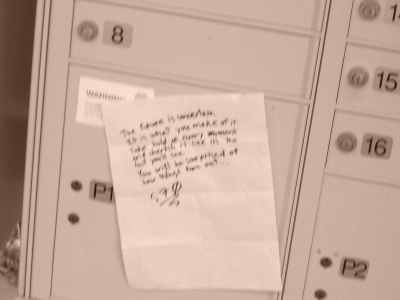 8
14
15
16
WARNING
The future is uncertain.
It is what you make of it.
Take hold of every moment
and cherish it like it's the
last you'll see.
You will be surprised at
how things turn out...
P1
P2